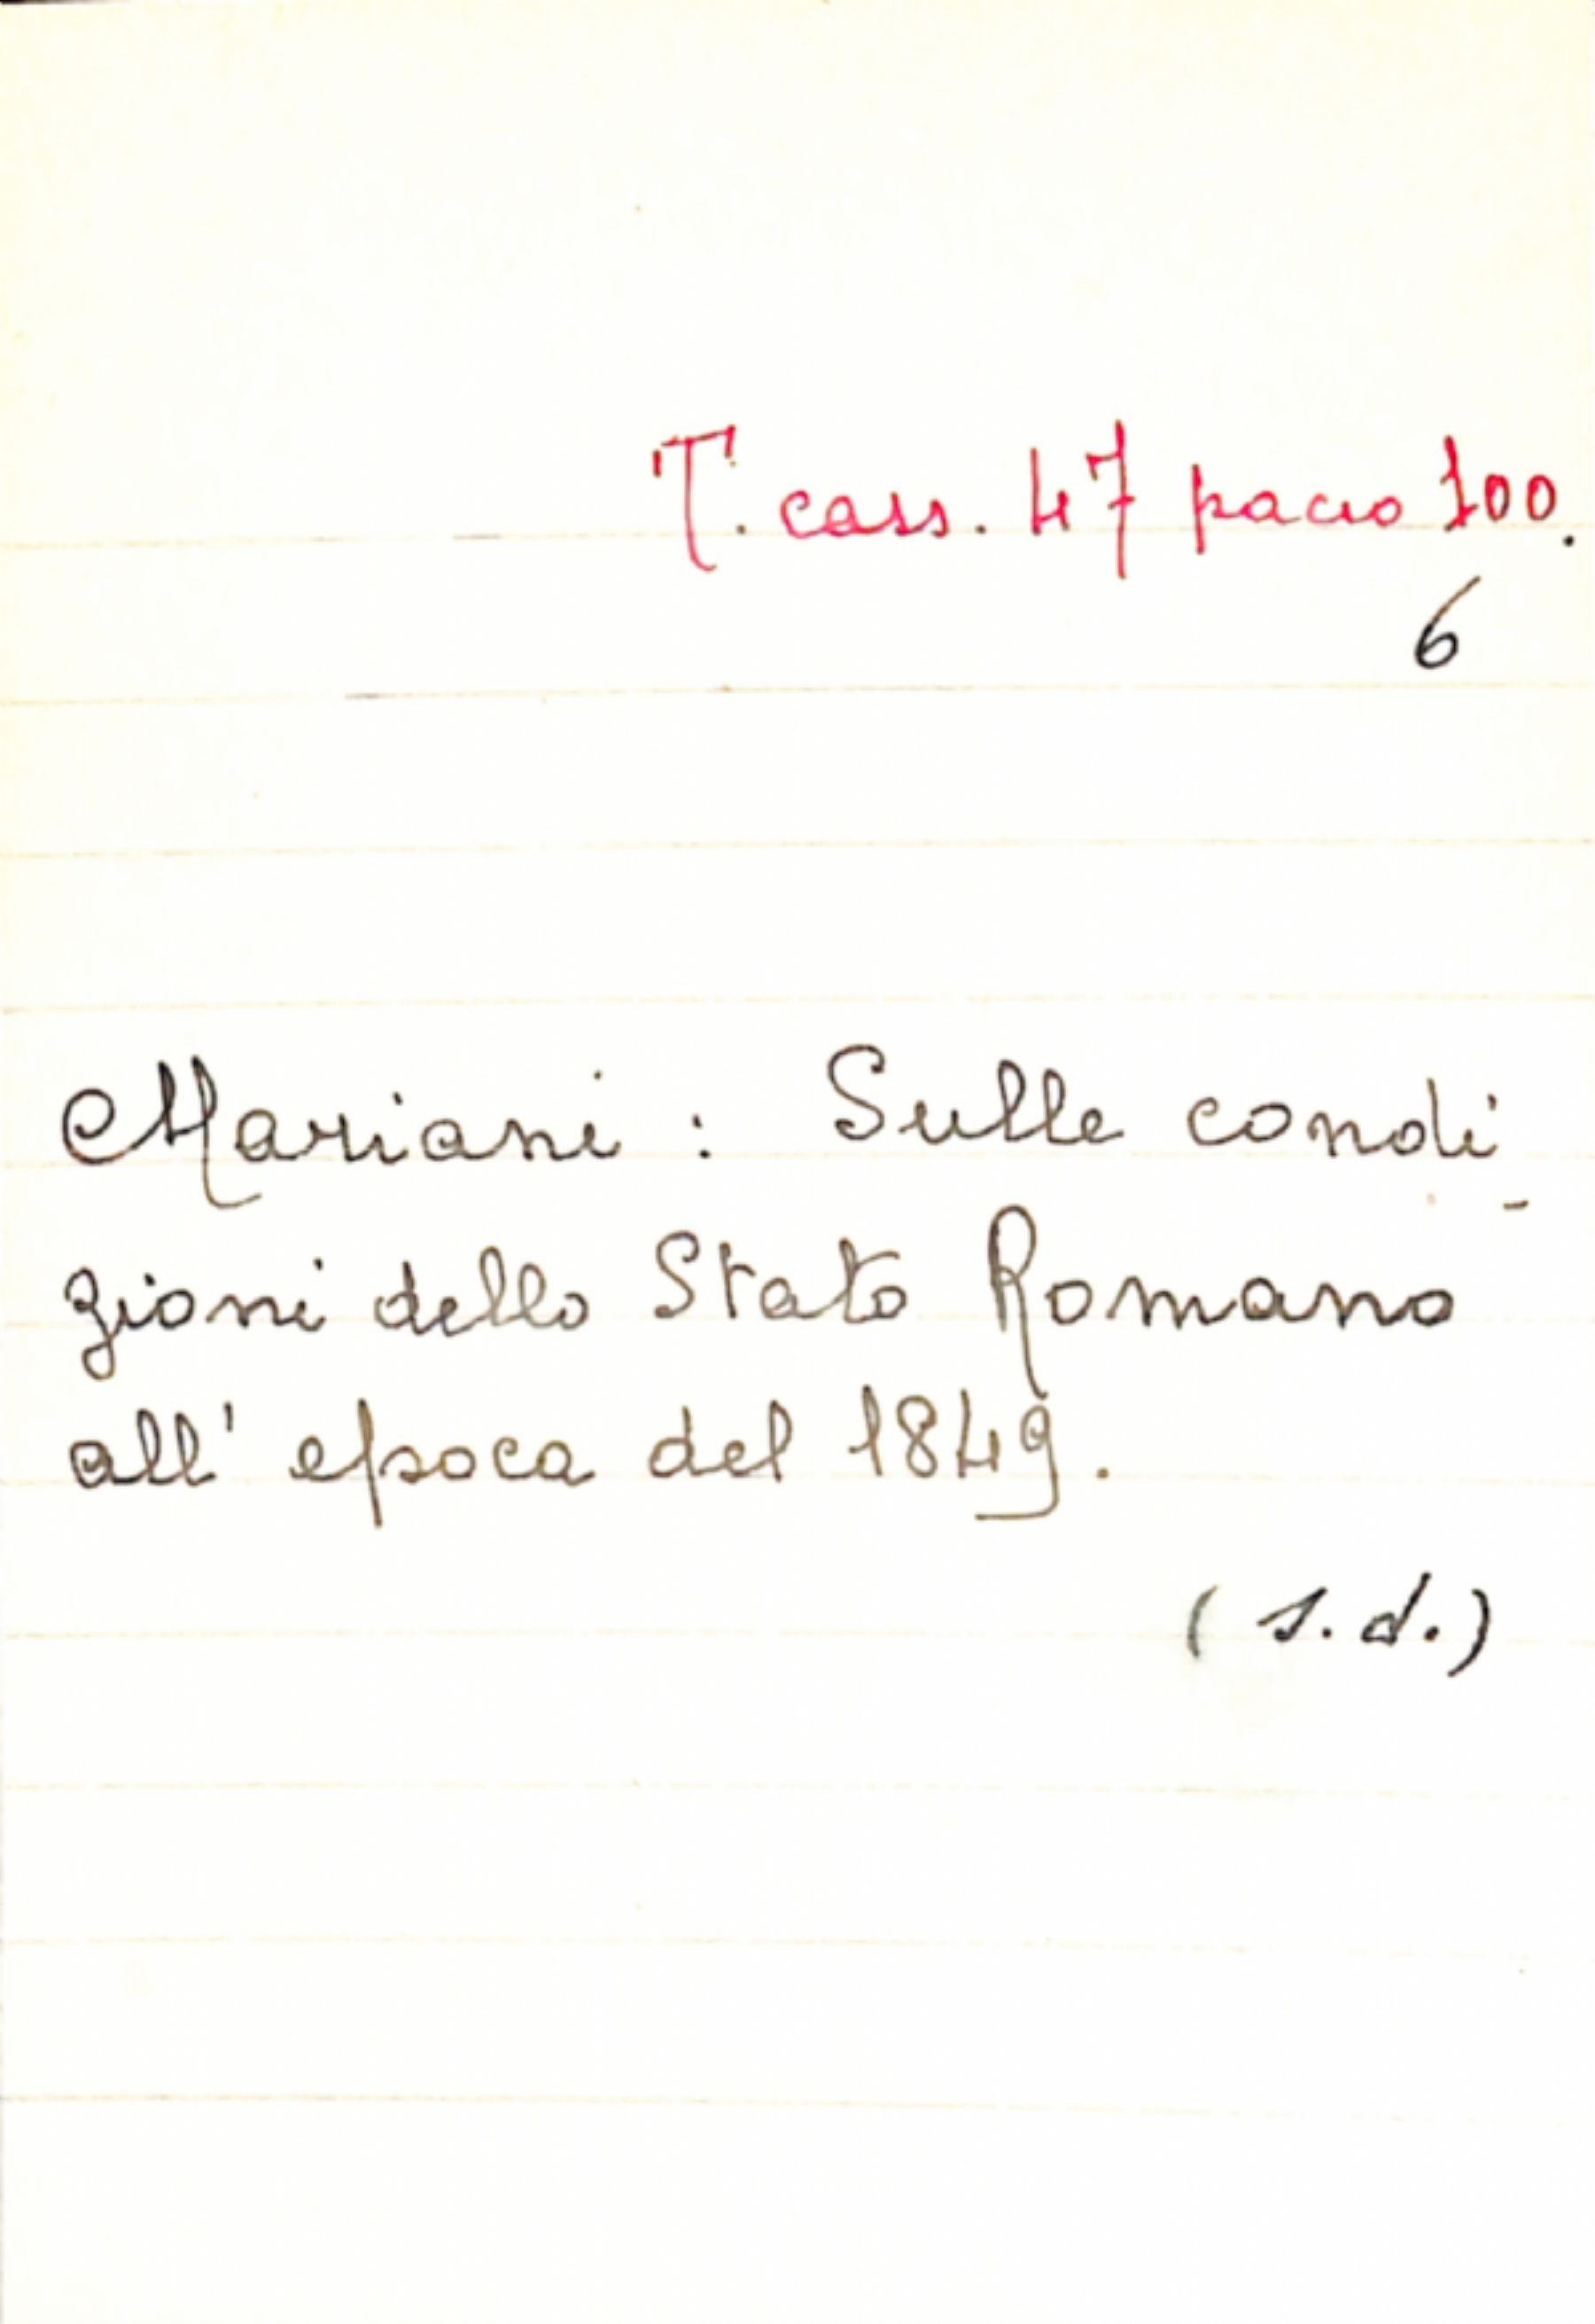 T. cass. 47 pacco 100.
6
Mariani : Sulle condi-
zioni dello Stato Romano
all' epoca del 1849.
(s.d.)